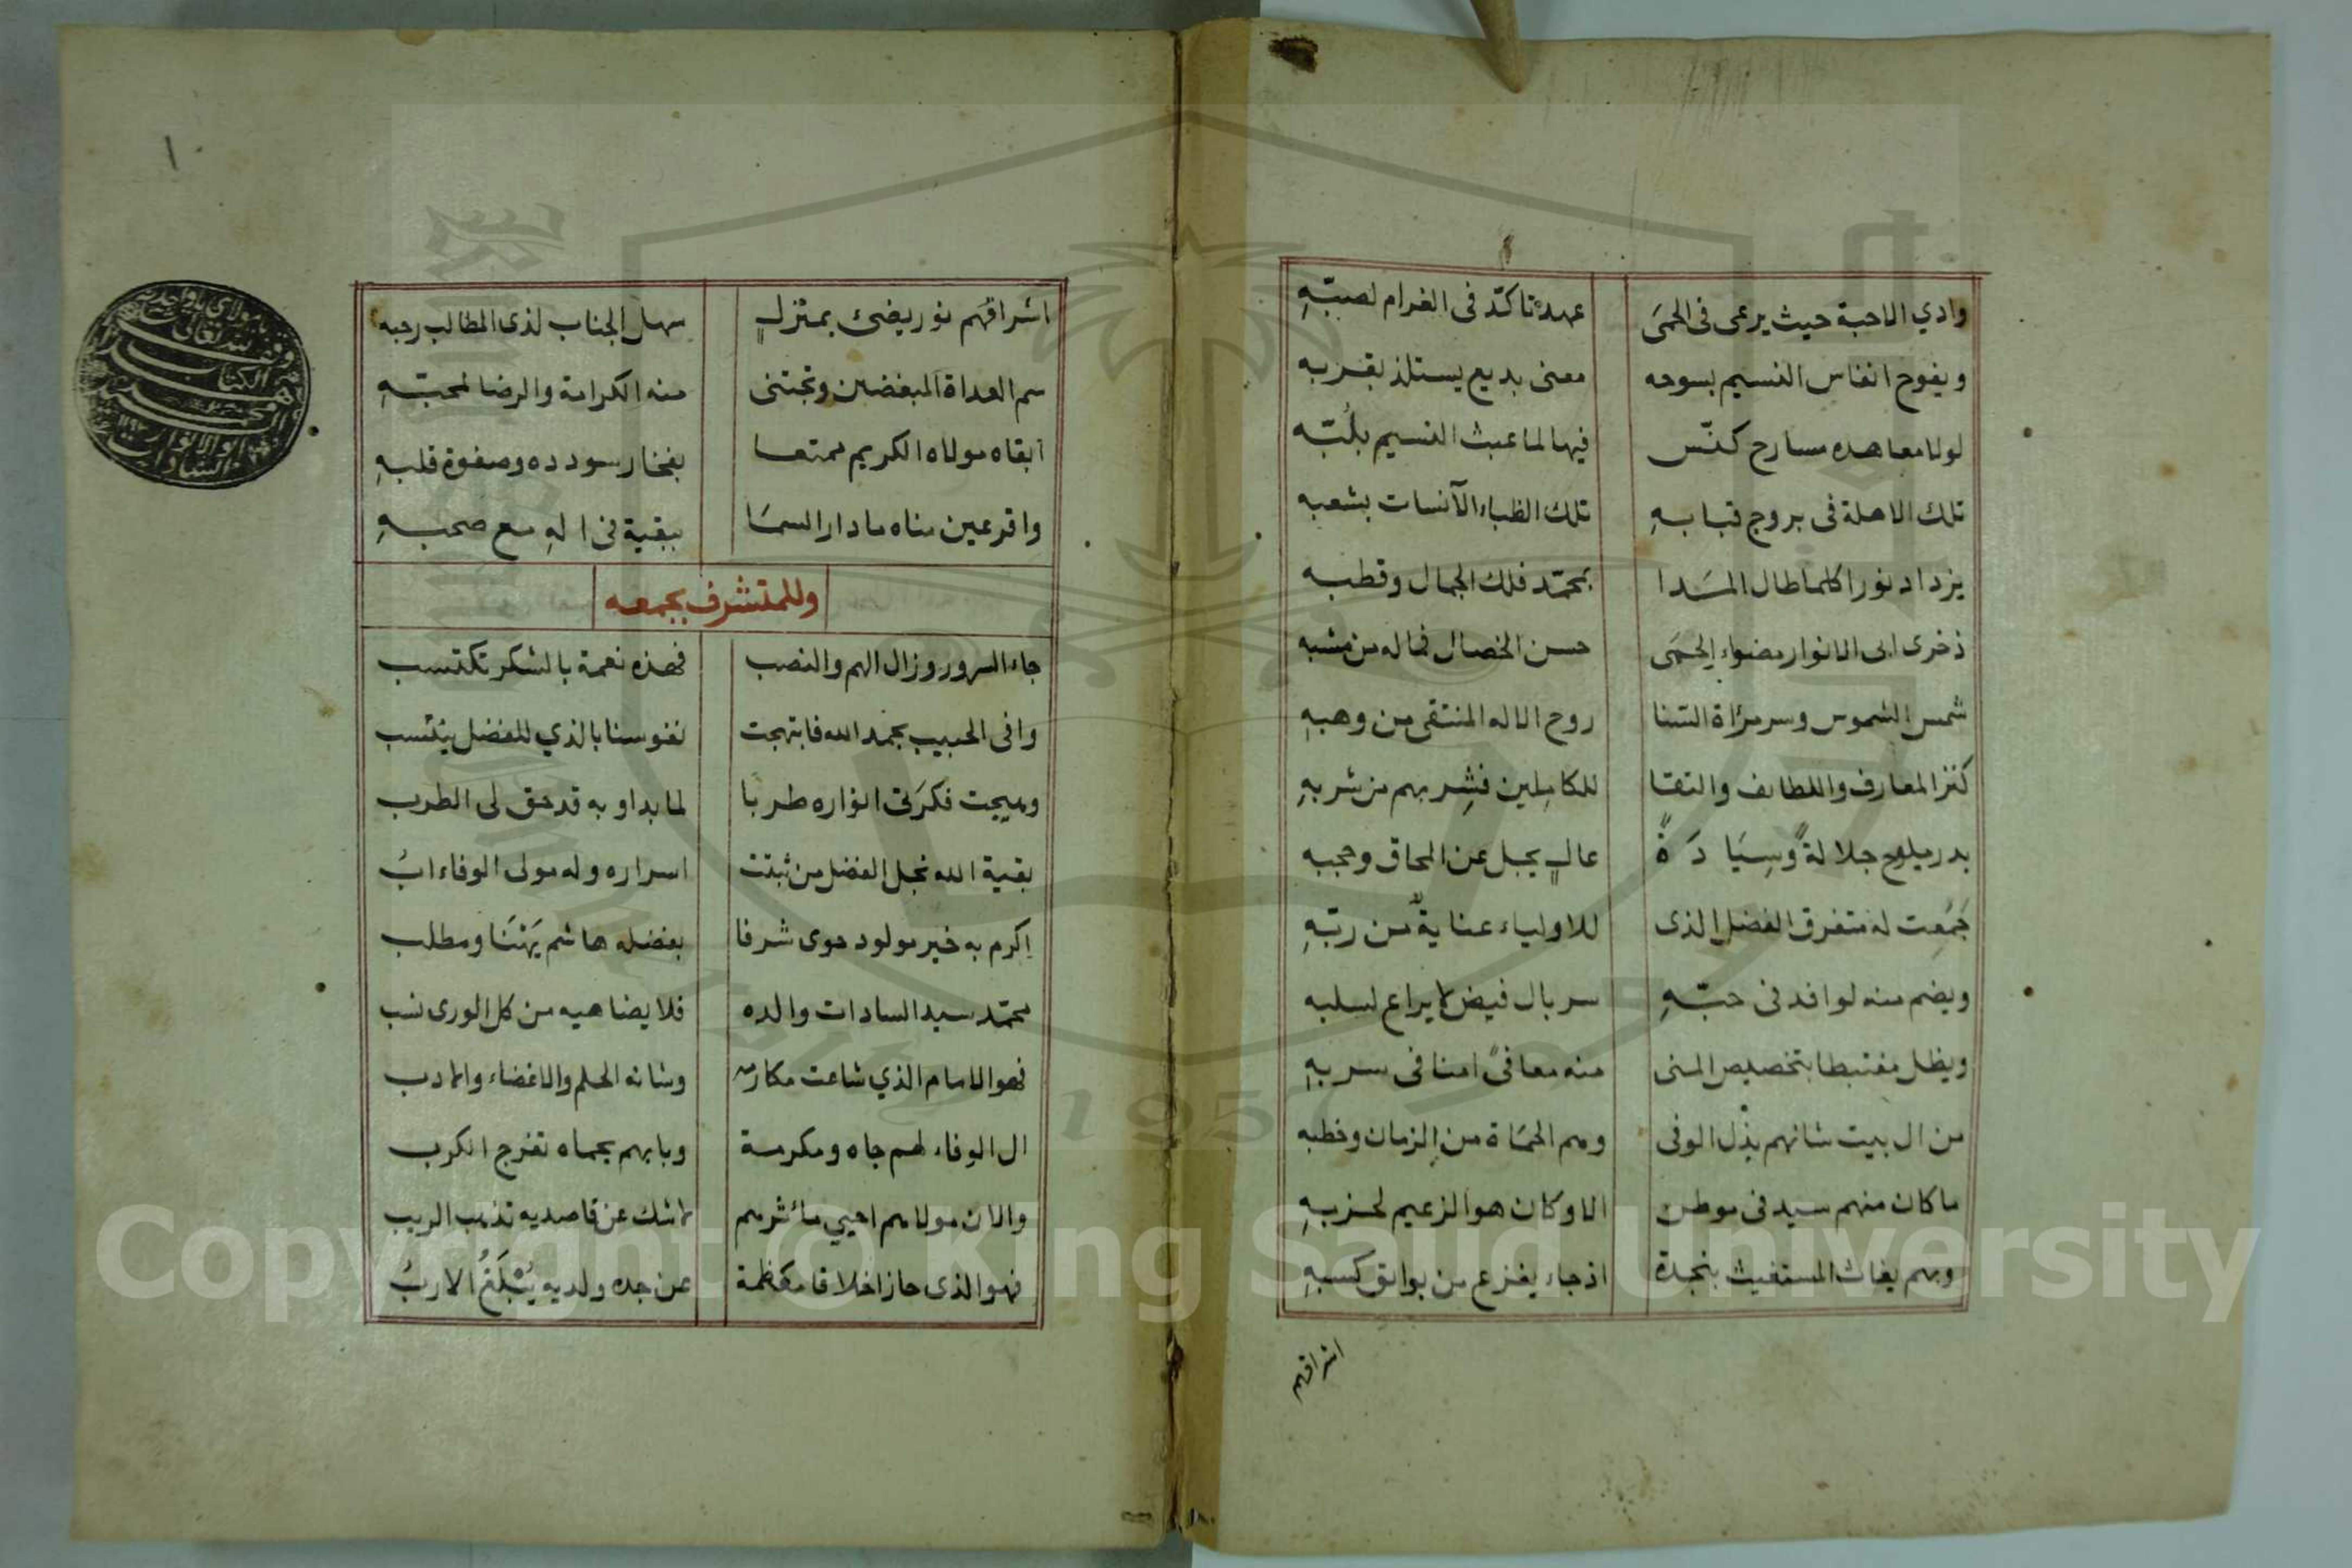 وادي الاحبة حيث يرعى فى الحمَى عهد تاكّد فى الغرام لصبّهِ
ويفوح انفاس النسيم بسوحه معنى بديع يستلذ بقربه
لولا معاهده مسارح كنّس فيها لما عبث النسيم بلُبّه
تلك الاهلة فى بروج قبابهِ تلك الظباء الآنسات بشعبه
يزداد نورا كلما طال المَدا بمحمّد فلك الجمال وقطبه
ذخرى ابى الانوار مضواء الحمَى حسن الخصال فماله من مشبه
شمس الشموس وسر مرآة السنا روح الاله المنتقى من وهبهِ
كنز المعارف واللطايف والتقا للكاملين فشِربهم من شربهِ
بدر يلوح جلالةً وسِيَادَةً عالٍ يجل عن المحاق وحجبه
جَمَعت له متفرق الفضل الذى للاولياء عنايةٌ من ربّهِ
ويضم منه لوافد فى حبّهِ سربال فيض لا يراع لسلبه
ويظل مغتبطا بتخصيص المنى منه معافىً امنا فى سربهِ
من ال بيت شانهم بذل الوفى وهم الحمَاة من الزمان وخطبه
ما كان منهم سيد فى موطن الا وكان هو الزعيم لحزبهِ
وبهم يغاث المستغيث بنجدة اذ جاء يفزع من بوايق كسبهِ
اشراقهم
١٠
اشراقهَم نور يضئ بمنزلٍ سهل الجناب لذى المطالب رحبه
سم العداة المبغضين وتجتنى منه الكرامة والرضا لمحبّهِ
ابقاه مولاه الكريم ممتعا بفخار سودده وصفوة قلبهِ
واقر عين مناه ما دار السمَا ببقية فى الهِ مع صحبهِ
وللمتشرف بجمعه
جاء السرور وزال الهم والنصب فهذه نعمة بالشكر تكتسب
وافى الحبيب بحمد الله فابتهجت نفوسنا بالذي للفضل ينتسب
وهيجت فكرَتى انواره طربا لما بدا وبه قد حق لى الطرب
بقية الله نجل الفضل من ثبتت اسراره وله مولى الوفاء ابُ
اكرم به خير مولود حوى شرفا بفضله هاشم يَهْنَا ومطلب
محمّد سيد السادات والده فلا يضاهيه من كل الورى نسب
فهو الامام الذي شاعت مكارمه وشانه الحلم والاغضاء والادب
ال الوفاء لهم جاه ومكرمة وبابهم بحماه تفرج الكرب
والان مولاهم احيي مآثرهم لاشك عن قاصديه تذهب الريب
فهو الذى حاز اخلاقا معظمة عن جده ولديه يُبْلَغُ الاربُ
Copyright © King Saud University
1957